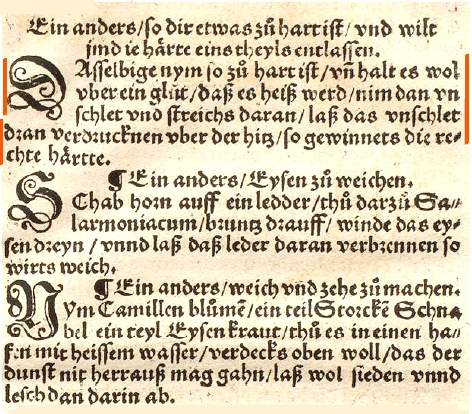 Ein anders/so dir etwas zů hart ist/ vnd wilt
jmd ie härte eins theyls entlassen.
DAsselbige nym so zů hart ist/ vn̄ halt es wol
vber ein glůt/ daß es heiß werd/ nim dan vn
schlet vnd streichs daran/ laß das vnschlet
dran verdrucknen vber der hitz/ so gewinnets die re-
chte härtte.
¶ Ein anders/ Eysen zů weichen.
SChab horn auff ein ledder/ thů darzů Sa-
larmoniacum/ bruntz drauff/ winde das ey-
sen dreyn/ vnnd laß daß leder daran verbrennen so
wirts weich.
¶ Ein anders/ weich vnd zehe zů machen.
NYm Camillen blůmē/ ein teil Storckē Schna-
bel ein teyl Eysenkraut/ thů es in einen ha-
fen mit heissem wasser/ verdecks oben woll/ das der
dunst nit herrauß mag gahn/ laß wol sieden vnnd
lesch dan darin ab.